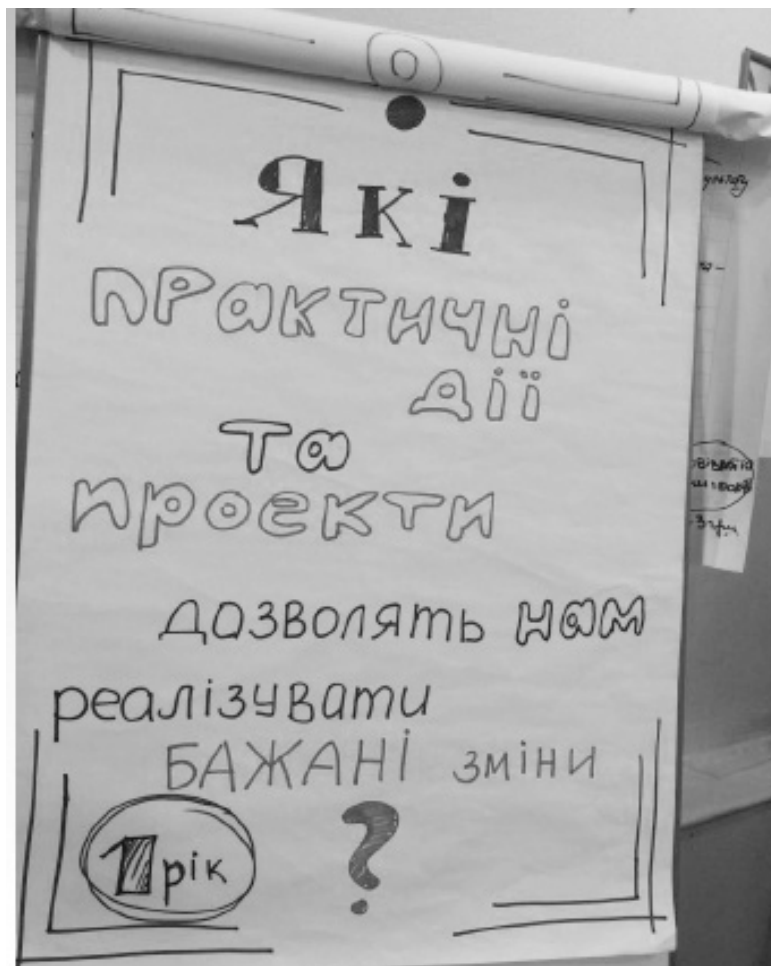 Які
ПРАКТИЧНІ
ДІЇ
Та
проєкти
дозволять нам
реалізувати
БАЖАНІ зміни
1 рік ?